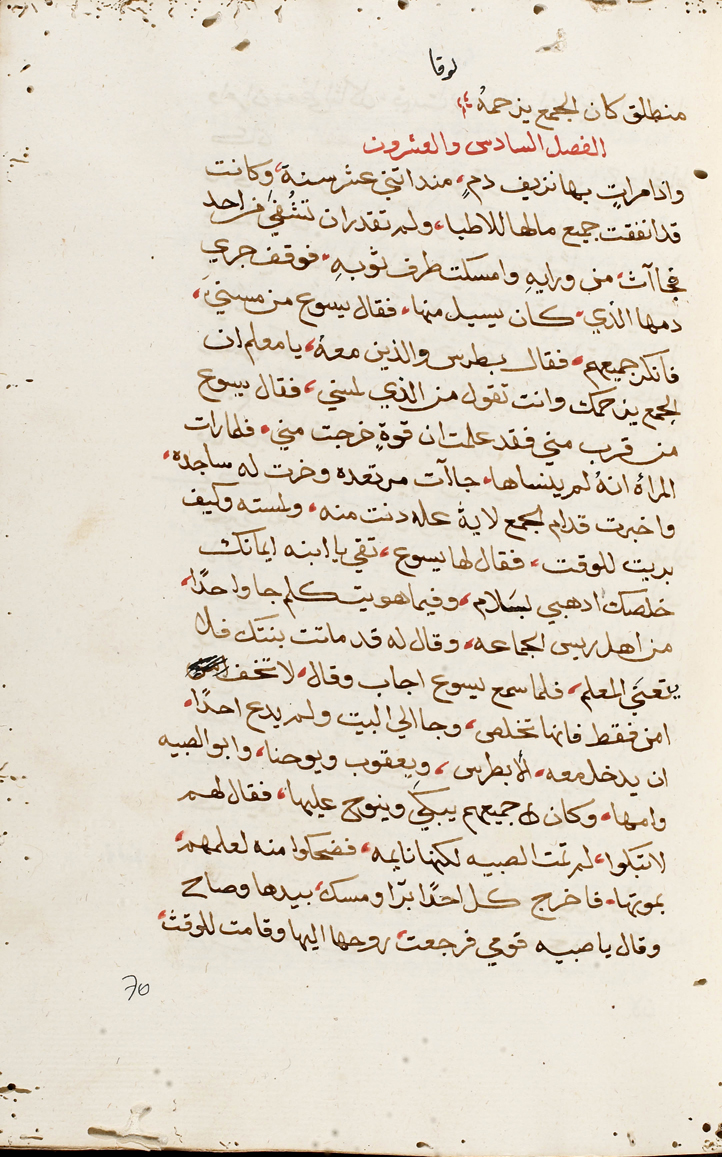 لوقا
منطلق كان الجمع يزحمهُ
الفصل السادس والعشرون
واذا مراتٍ بها نزيف دمٍ، منذ اثني عشر سنة، وكانت
قد انفقت جميع مالها للاطبا، ولم تقدر ان تشُفيَ من احد
فجاآت، من ورايهِ وامسكت طرف ثوبهِ، فوقف جري
دمها الذي، كان يسيل منها، فقال يسوع من مسني،
فانكر جميعهم، فقال بطرس والذين معهُ، يا معلم ان
الجمع يزحمك وانت تقول من الذي لمسني، فقال يسوع
من قرب مني فقد علمت ان قوةٍ خرجت مني، فلما رات
المراة انهُ لم ينساها، جاآت مرتعده وخرت له ساجده،
واخبرت قدام الجمع لاية عله دنت منه، ولمسته وكيف
بريت للوقت، فقال لها يسوع، ثقي يا ابنه ايمانك
خلصك اذهبي بسَلام، وفيما هو يتكلم جا واحدًا،
من اهل ريس الجماعه، وقال له قد ماتت بنتك فلا
تعني المعلم، فلما سمع يسوع اجاب وقال، لا تخف
امن فقط فانها تخلص، وجا الي البيت ولم يدع احدًا،
ان يدخل معه، الا بطرس، ويعقوب ويوحنا، وابو الصبيه
وامها، وكان جميعهم يبكي وينوح عليها، فقال لهم
لا تبكوا، لم تمت الصبيه لكنها نايمه، فضحكوا منه لعلمهم،
بموتها، فاخرج كل احدًا برّا ومسك، بيدها وصاح
وقال يا صبيه قومي فرجعت، روحها اليها وقامت للوقت،
70